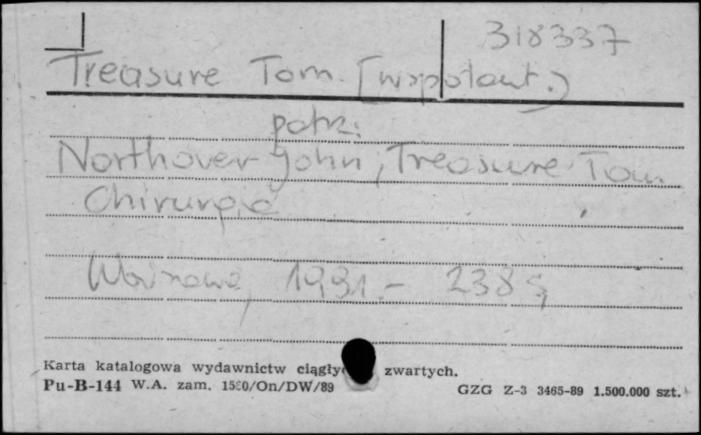 318337
Treasure Tom. [współaut.)
patrz:
Northover John, Treasure Tom
Chirurgia
Warszawa, 1991.- 238 s,
Karta katalogowa wydawnictw ciągły zwartych.
Pu-B-144 W.A. zam. 1580/On/DW/89 GZG Z-3 3465-89 1.500.000 szt.